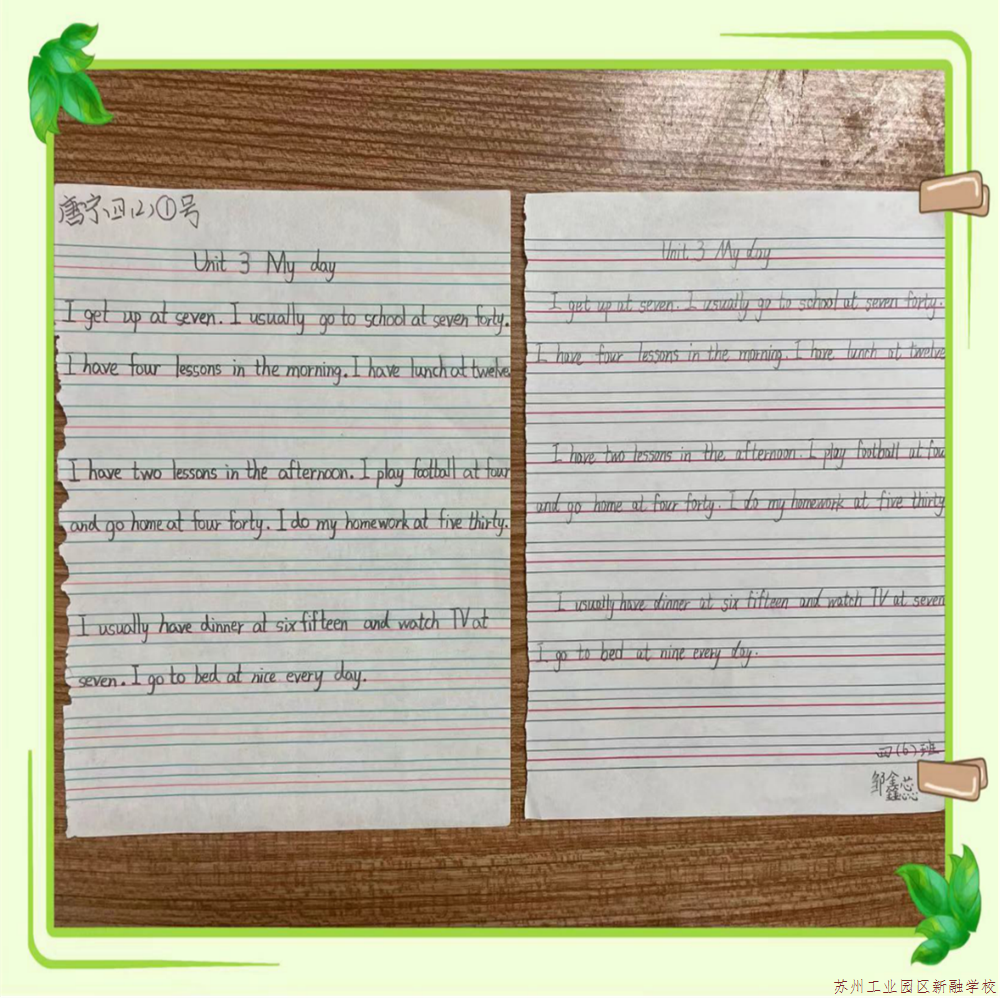 唐宁四(2)①号
Unit 3 My day
I get up at seven. I usually go to school at seven forty.
I have four lessons in the morning. I have lunch at twelve
I have two lessons in the afternoon. I play football at four
and go home at four forty. I do my homework at five thirty.
I usually have dinner at six fifteen and watch TV at
seven. I go to bed at nice every day.
Unit 3 My day
I get up at seven. I usually go to school at seven forty.
I have four lessons in the morning. I have lunch at twelve
I have two lessons in the afternoon. I play football at four
and go home at four forty. I do my homework at five thirty
I usually have dinner at six fifteen and watch TV at seven
I go to bed at nine every day.
四(6)班
邹鑫蕊
苏州工业园区新融学校